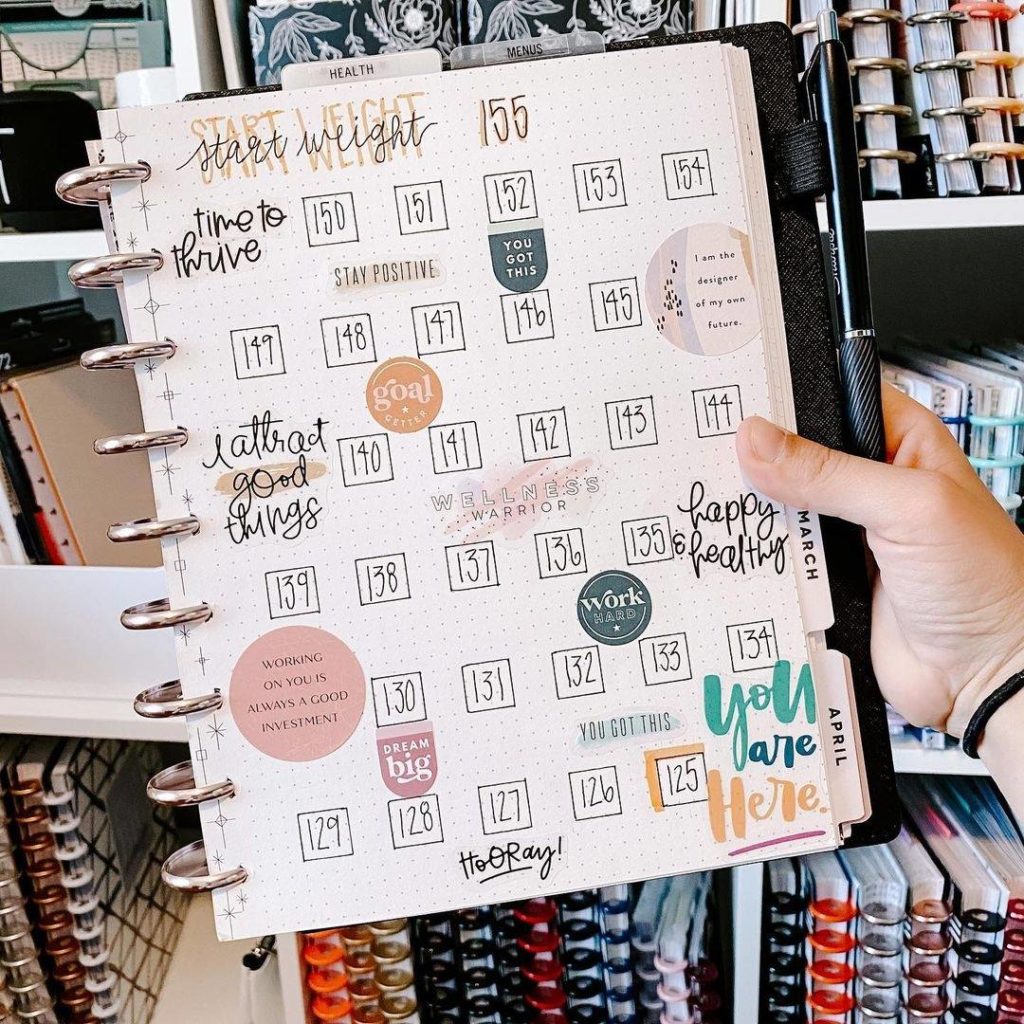 HEALTH
MENUS
START WEIGHT
start weight 155
150 151 152 153 154
time to
thrive
YOU
GOT
THIS
STAY POSITIVE
I am the
designer
of my own
future.
149 148 147 146 145
goal
GETTER
I attract
good
things
140 141 142 143 144
WELLNESS
WARRIOR
happy
& healthy
139 138 137 136 135
work
HARD
WORKING
ON YOU IS
ALWAYS A GOOD
INVESTMENT
130 131 132 133 134
DREAM
big
YOU GOT THIS
You
are
Here.
129 128 127 126 125
HOORay!
MARCH
APRIL
Sharpie
72